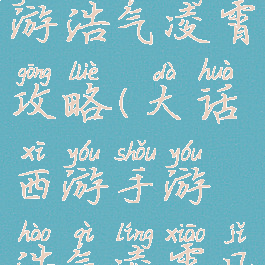 游浩气凌霄
gōng lüè dà huà
攻略(大话
xī yóu shǒu yóu
西游手游
hào qì líng xiāo
浩气凌霄